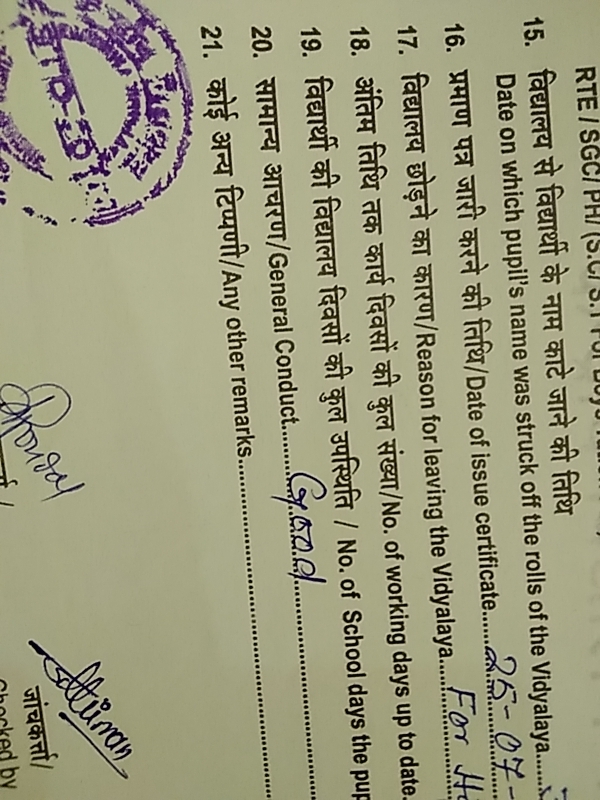 RTE / SGC/ PH/ (S.C/ S.T For Boys
15. विद्यालय से विद्यार्थी के नाम काटे जाने की तिथि
Date on which pupil's name was struck off the rolls of the Vidyalaya......
16. प्रमाण पत्र जारी करने की तिथि/Date of issue certificate......25-07-
17. विद्यालय छोड़ने का कारण/Reason for leaving the Vidyalaya..... For
18. अंतिम तिथि तक कार्य दिवसों की कुल संख्या/No. of working days up to date.
19. विद्यार्थी की विद्यालय दिवसों की कुल उपस्थिति / No. of School days the
20. सामान्य आचरण/General Conduct..........Good..........
21. कोई अन्य टिप्पणी/Any other remarks..........
जांचकर्ता/
Checked by